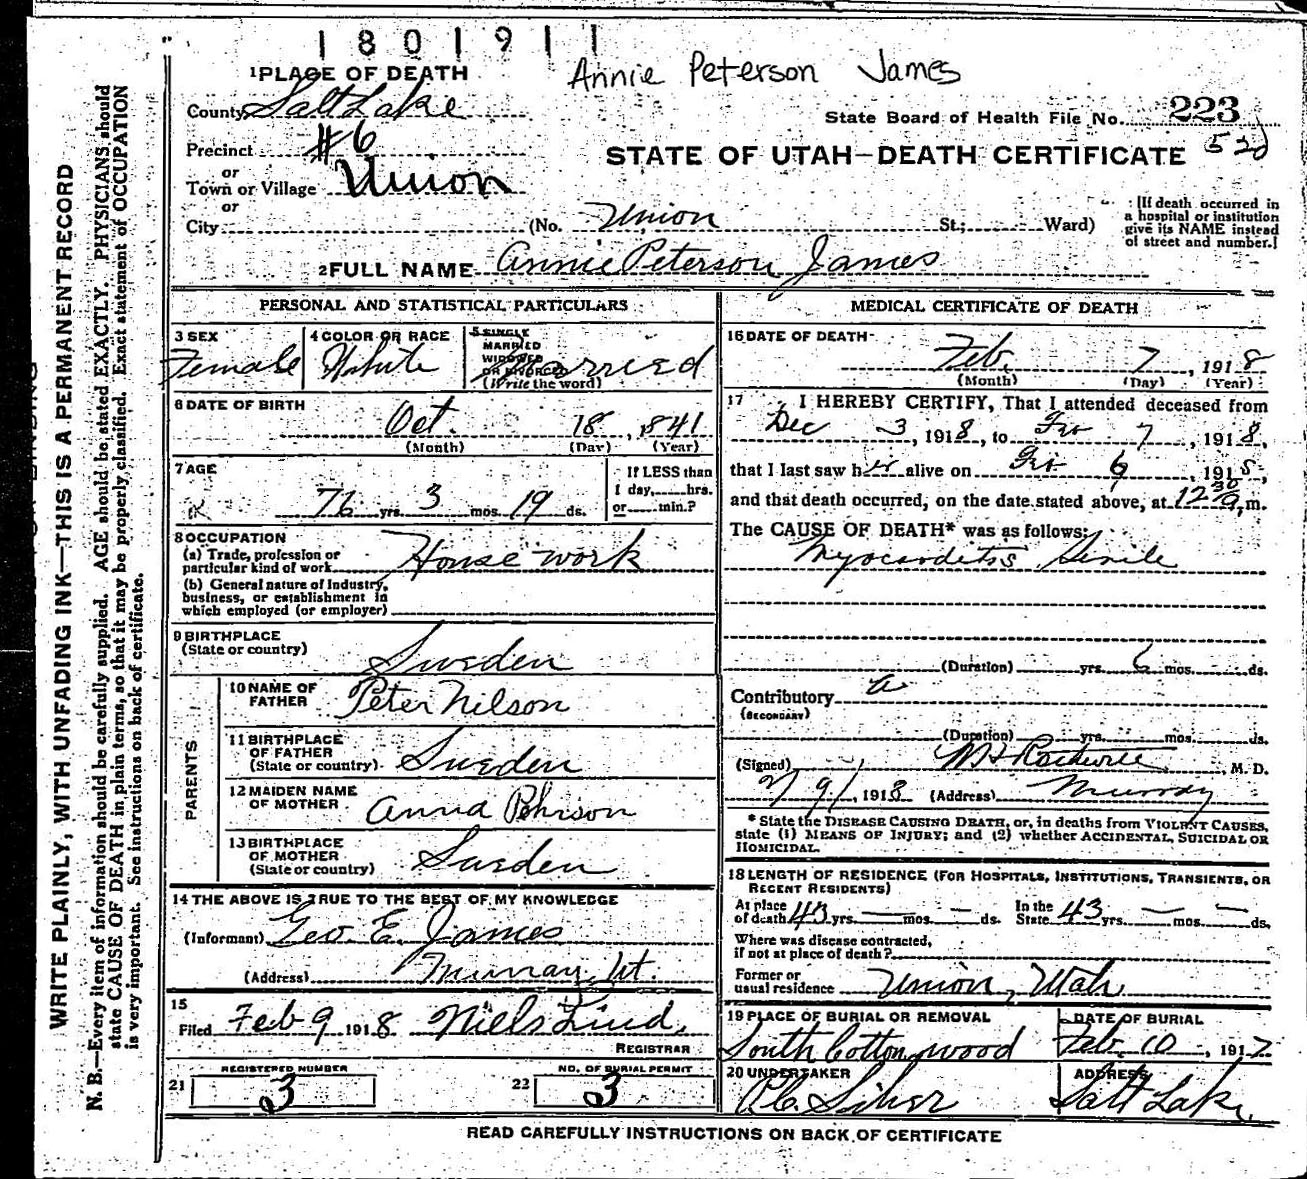 1801911
Annie Peterson James
1 PLACE OF DEATH
County Salt Lake
State Board of Health File No. 223
Precinct #6
STATE OF UTAH—DEATH CERTIFICATE 52d
or
Town or Village Union
or
City (No. Union St.; Ward)
[If death occurred in
a hospital or institution
give its NAME instead
of street and number.]
2 FULL NAME Annie Peterson James
PERSONAL AND STATISTICAL PARTICULARS
3 SEX
Female
4 COLOR OR RACE
White
5 SINGLE
MARRIED
WIDOWED
OR DIVORCED
(Write the word)
Married
6 DATE OF BIRTH
Oct. 18, 1841
(Month) (Day) (Year)
7 AGE
76 yrs. 3 mos. 19 ds.
If LESS than
1 day, hrs.
or min.?
8 OCCUPATION
(a) Trade, profession or
particular kind of work House work
(b) General nature of Industry,
business, or establishment in
which employed (or employer)
9 BIRTHPLACE
(State or country)
Sweden
PARENTS
10 NAME OF
FATHER
Peter Nilson
11 BIRTHPLACE
OF FATHER
(State or country)
Sweden
12 MAIDEN NAME
OF MOTHER
Anna
13 BIRTHPLACE
OF MOTHER
(State or country)
Sweden
14 THE ABOVE IS TRUE TO THE BEST OF MY KNOWLEDGE
(Informant) Geo. E. James
(Address) Murray, Ut.
15
Filed Feb 9 1918 Niels Lind,
REGISTRAR
21 REGISTERED NUMBER
3
22 NO. OF BURIAL PERMIT
3
MEDICAL CERTIFICATE OF DEATH
16 DATE OF DEATH
Feb. 7, 1918
(Month) (Day) (Year)
17 I HEREBY CERTIFY, That I attended deceased from
Dec 3, 1918, to 7, 1918,
that I last saw her alive on 6, 1918,
and that death occurred, on the date stated above, at 12 30 a, m.
The CAUSE OF DEATH* was as follows:
Myocarditis Senile
(Duration) yrs. 6 mos. ds.
Contributory
(SECONDARY)
(Duration) yrs. mos. ds.
(Signed) , M. D.
2/9/, 1918 (Address) Murray
* State the DISEASE CAUSING DEATH, or, in deaths from VIOLENT CAUSES,
state (1) MEANS OF INJURY; and (2) whether ACCIDENTAL, SUICIDAL OR
HOMICIDAL.
18 LENGTH OF RESIDENCE (FOR HOSPITALS, INSTITUTIONS, TRANSIENTS, OR
RECENT RESIDENTS)
At place
of death 43 yrs. — mos. — ds.
In the
State 43 yrs. — mos. — ds.
Where was disease contracted,
if not at place of death?
Former or
usual residence Union, Utah
19 PLACE OF BURIAL OR REMOVAL
South Cottonwood
DATE OF BURIAL
Feb. 10, 1917
20 UNDERTAKER
ADDRESS
Salt Lake
READ CAREFULLY INSTRUCTIONS ON BACK OF CERTIFICATE
WRITE PLAINLY, WITH UNFADING INK—THIS IS A PERMANENT RECORD
N. B.—Every item of information should be carefully supplied. AGE should be stated EXACTLY. PHYSICIANS should
state CAUSE OF DEATH in plain terms, so that it may be properly classified. Exact statement of OCCUPATION
is very important. See instructions on back of certificate.